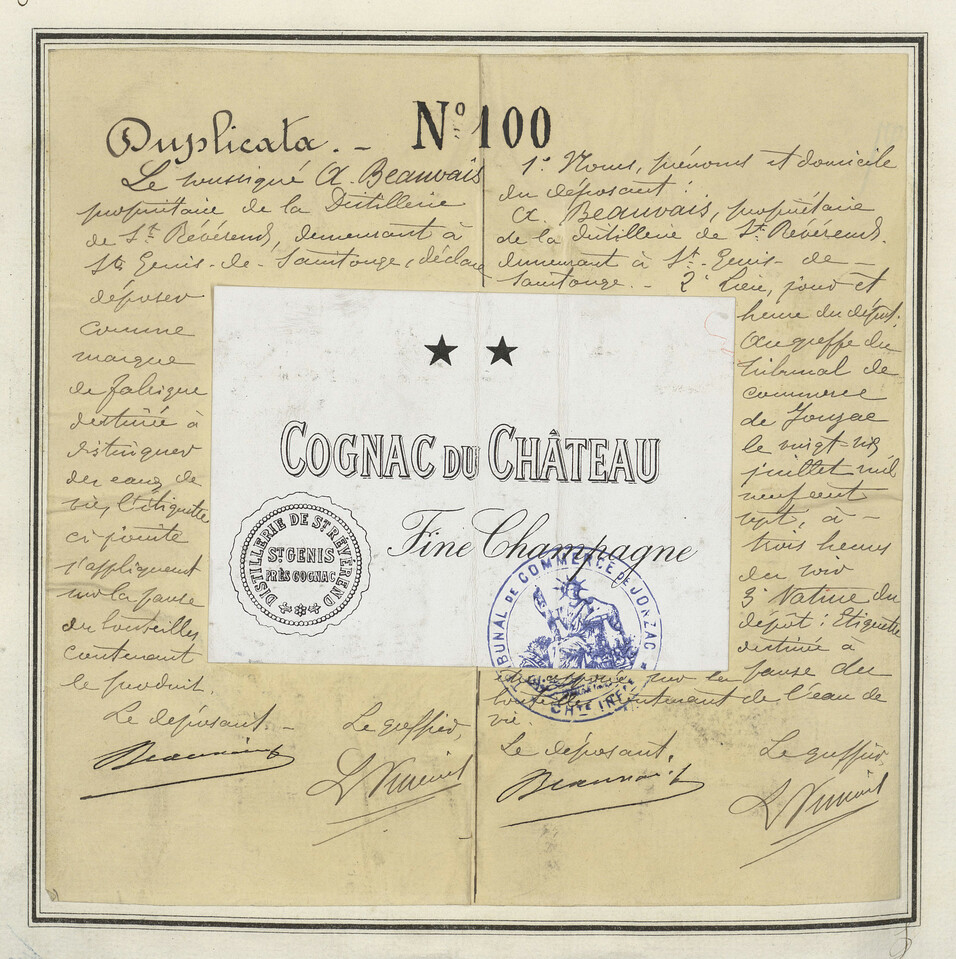 Duplicata. - Nº 100
Le soussigné A. Beauvais
propriétaire de la Distillerie
de St. Révérend, demeurant à
St. Genis-de-Saintonge, déclare
déposer
comme
marque
de fabrique
destinée à
distinguer
des eaux de
vie, l'étiquette
ci-jointe
s'appliquant
sur la panse
des bouteilles
contenant
le produit.
Le déposant. -
Le greffier,
Beauvais
1º Noms, prénoms et domicile
du déposant :
A. Beauvais, propriétaire
de la distillerie de St. Révérend.
demeurant à St. Genis-de-
Saintonge. - 2º Lieu, jour et
heure du dépôt:
Au greffe du
Tribunal de
Commerce
de Jonzac
le vingt-six
juillet mil
neuf cent
sept, à -
trois heures
du soir
3º Nature du
dépôt : Etiquette
destinée à
sur la panse des
bouteilles contenant de l'eau de
vie.
Le déposant,
Le greffier,
Beauvais
COGNAC DU CHÂTEAU
Fine Champagne
DISTILLERIE DE ST RÉVÉREND
ST GENIS
PRÈS COGNAC
TRIBUNAL DE COMMERCE DE JONZAC
CHTE INFRE